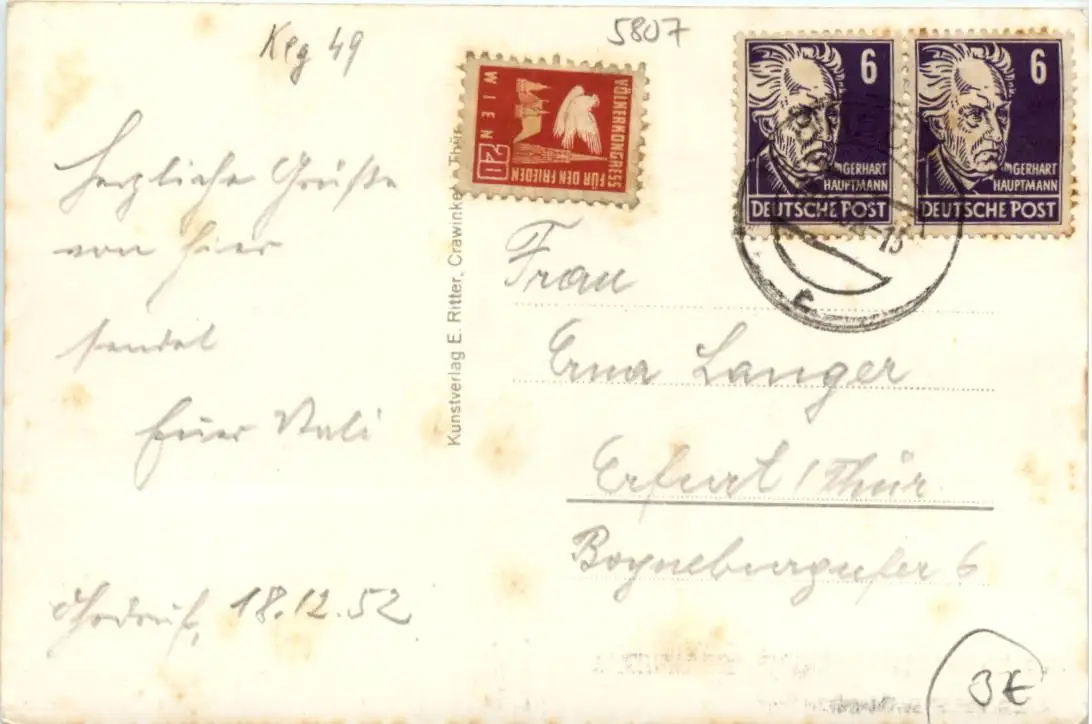 Kpg 49
5807
VÖLKERKONGRESS
FÜR DEN FRIEDEN
WIEN 20
6
GERHART
HAUPTMANN
DEUTSCHE POST
6
GERHART
HAUPTMANN
DEUTSCHE POST
Herzliche Grüße
von hier
sendet
Euer Vali
Ohrdruf, 18.12.52
Kunstverlag E. Ritter, Crawinkel Thür.
Frau
Erna Langer
Erfurt / Thür.
Boyneburgufer 6
3€